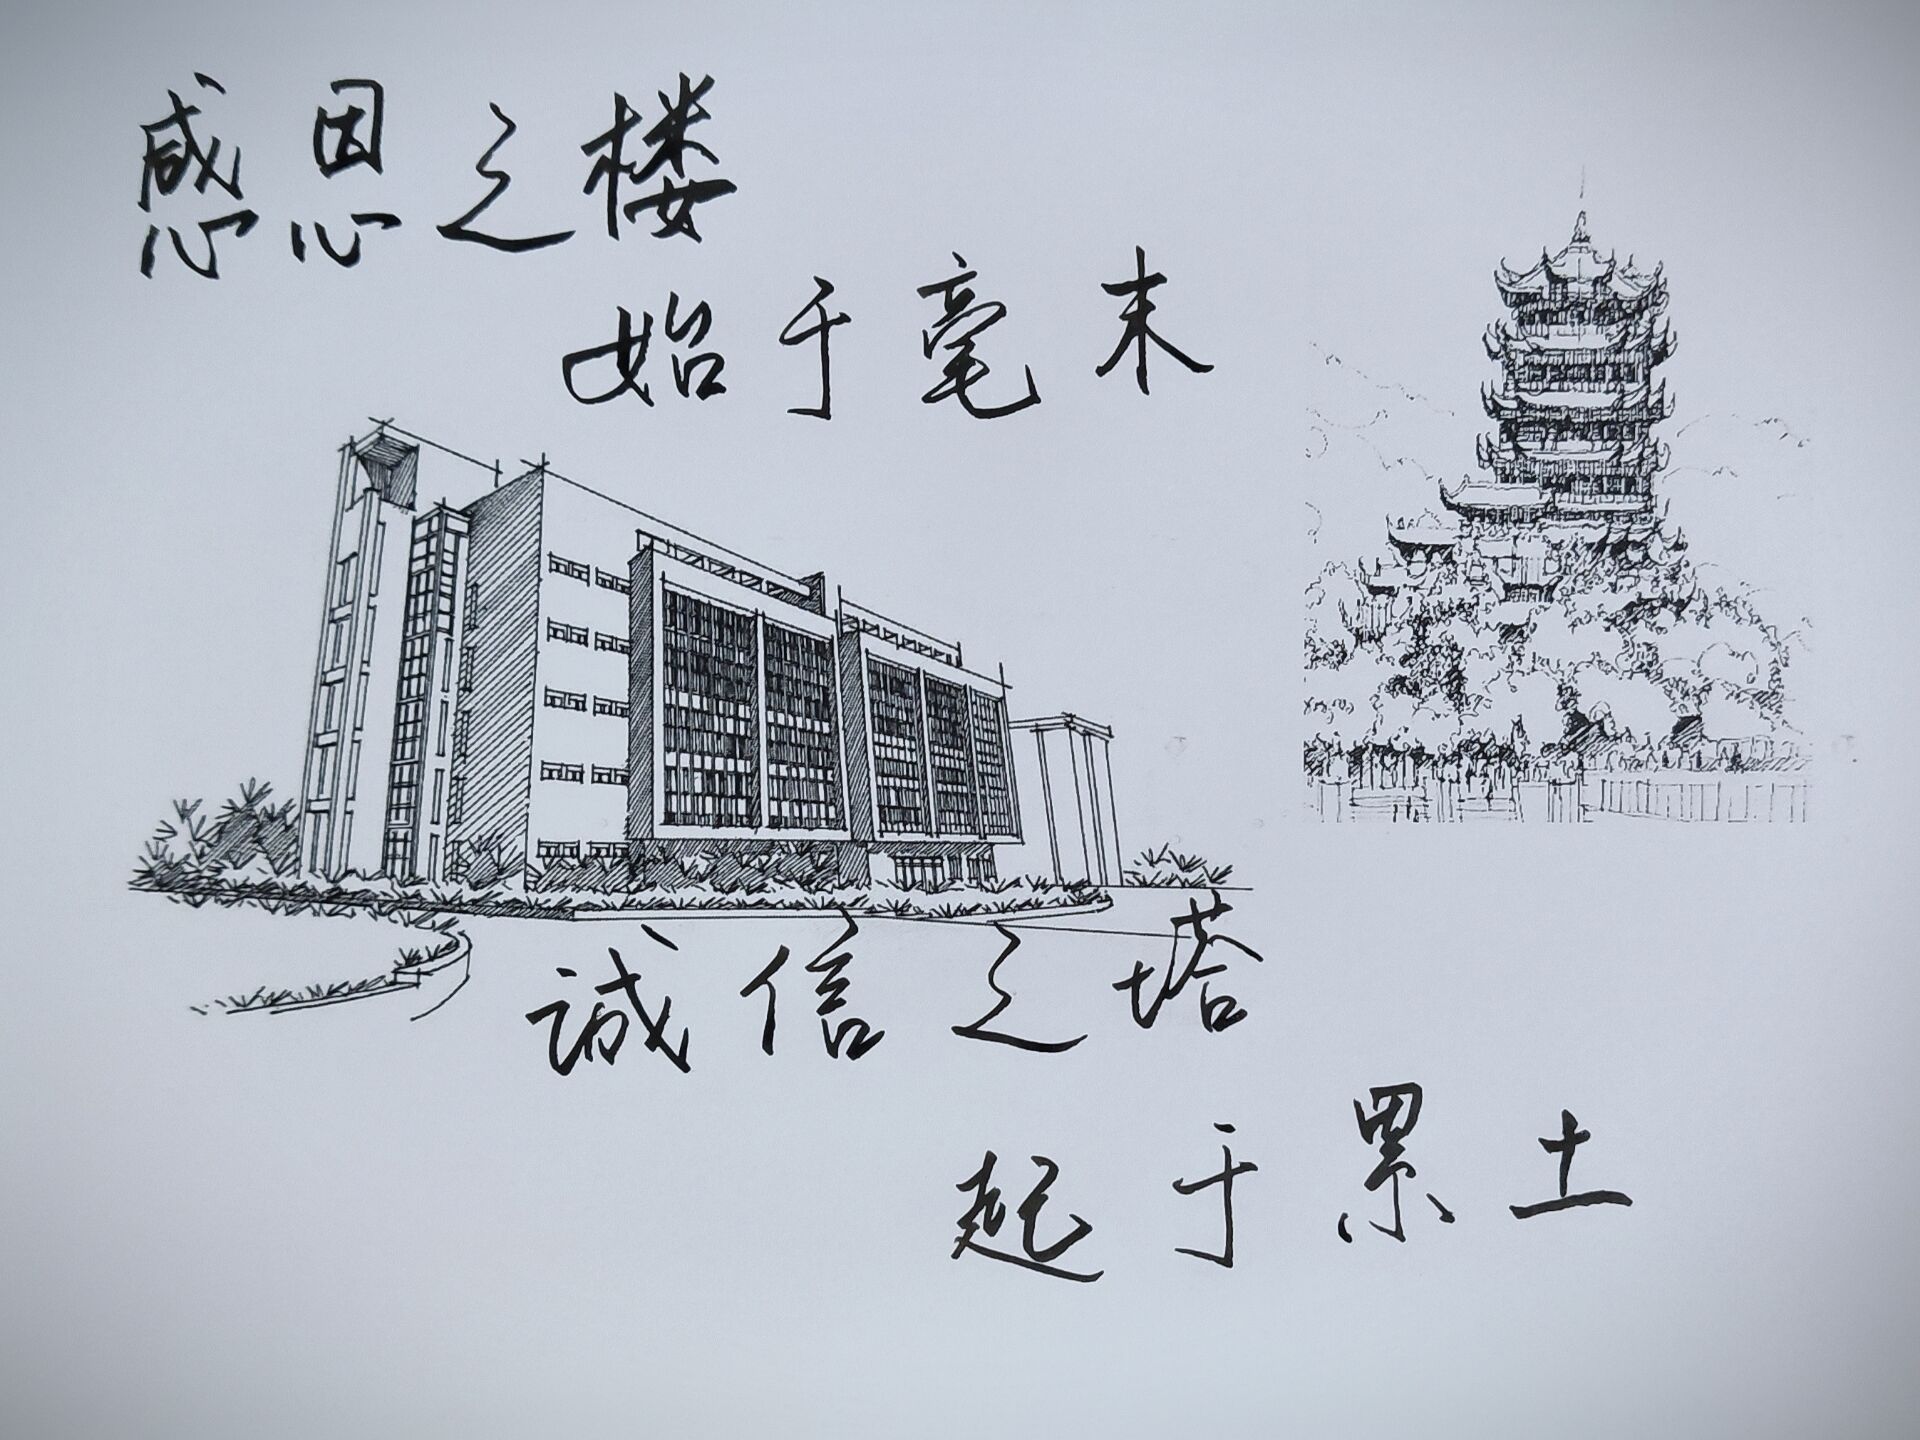 感恩之楼
始于毫末
誠信之塔
起于累土